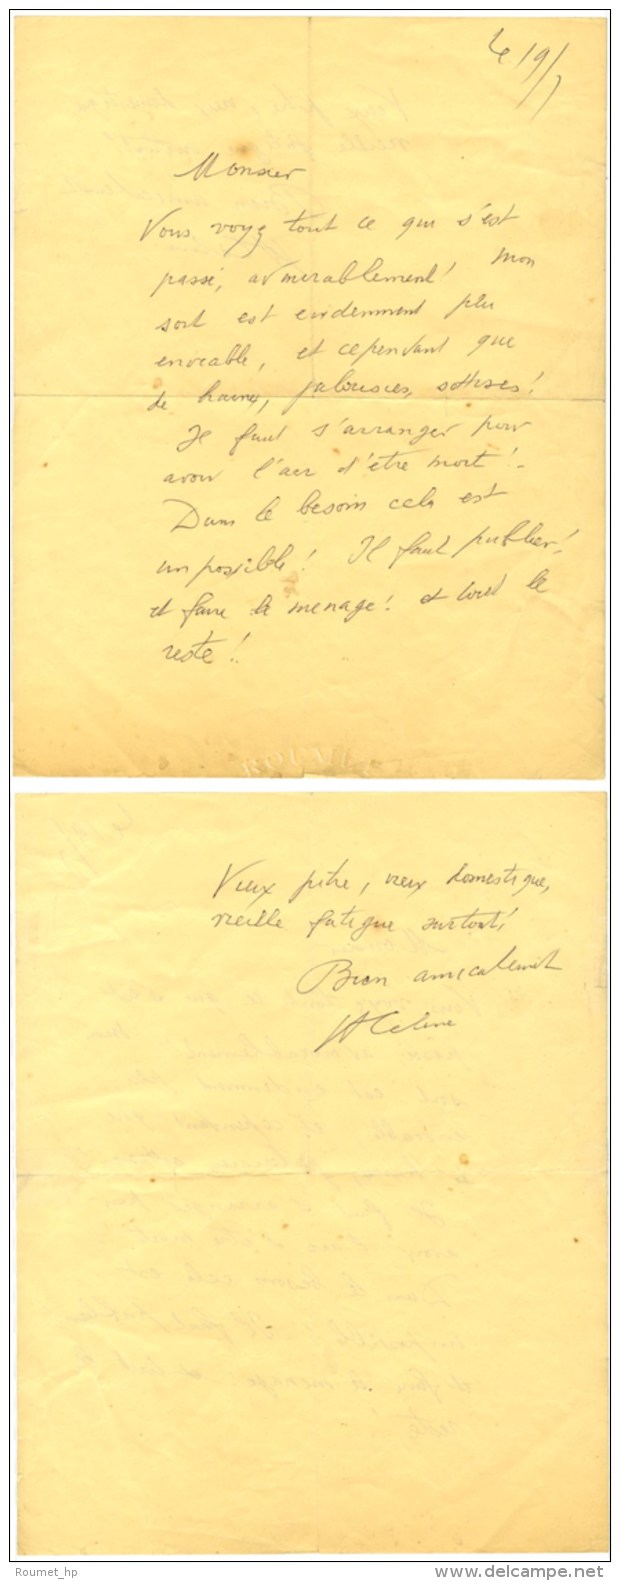 Le 19/7
Monsieur
Vous voyez tout ce qui s'est
passé, admirablement! Mon
sort est evidemment peu
enviable, et cependant que
de haines, jalousies, sottises!
Il faut s'arranger pour
avoir l'air d'être mort!
Dans le besoin cela est
impossible! Il faut publier!
et faire le menage! et tout le
reste!
Vieux pitre, vieux domestique,
vieille fatigue surtout!
Bien amicalement
LF Celine
Roumet_hp
delcampe.net